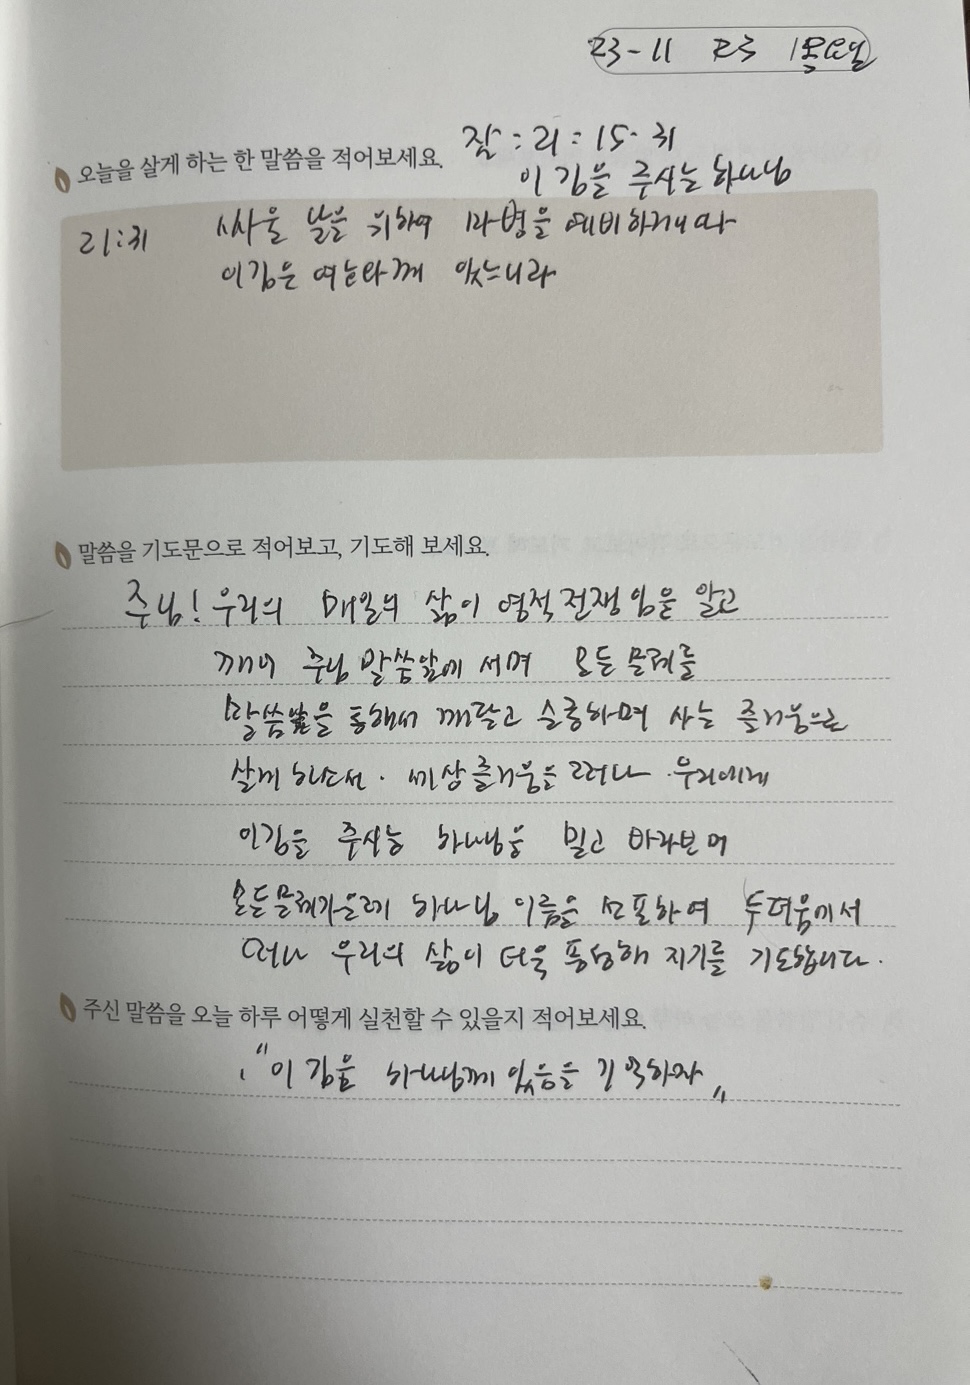 23-11 23 목요일
잠:21:15-31
오늘을 살게 하는 한 말씀을 적어보세요.
이김을 주시는 하나님
21:31 싸울 날을 위하여 마병을 예비하거니와
이김은 여호와께 있느니라
말씀을 기도문으로 적어보고, 기도해 보세요.
주님! 우리의 매일의 삶이 영적전쟁 임을 알고
깨어 주님 말씀앞에 서며 모든 문제를
말씀을 통해서 깨닫고 순종하며 사는 즐거움으로
살게 하소서. 세상즐거움을 떠나 우리에게
이김을 주시는 하나님을 믿고 바라보며
모든문제가운데 하나님 이름을 선포하여 두려움에서
떠나 우리의 삶이 더욱 풍성해 지기를 기도합니다.
주신 말씀을 오늘 하루 어떻게 실천할 수 있을지 적어보세요.
"이김을 하나님께 있음을 기억하자"